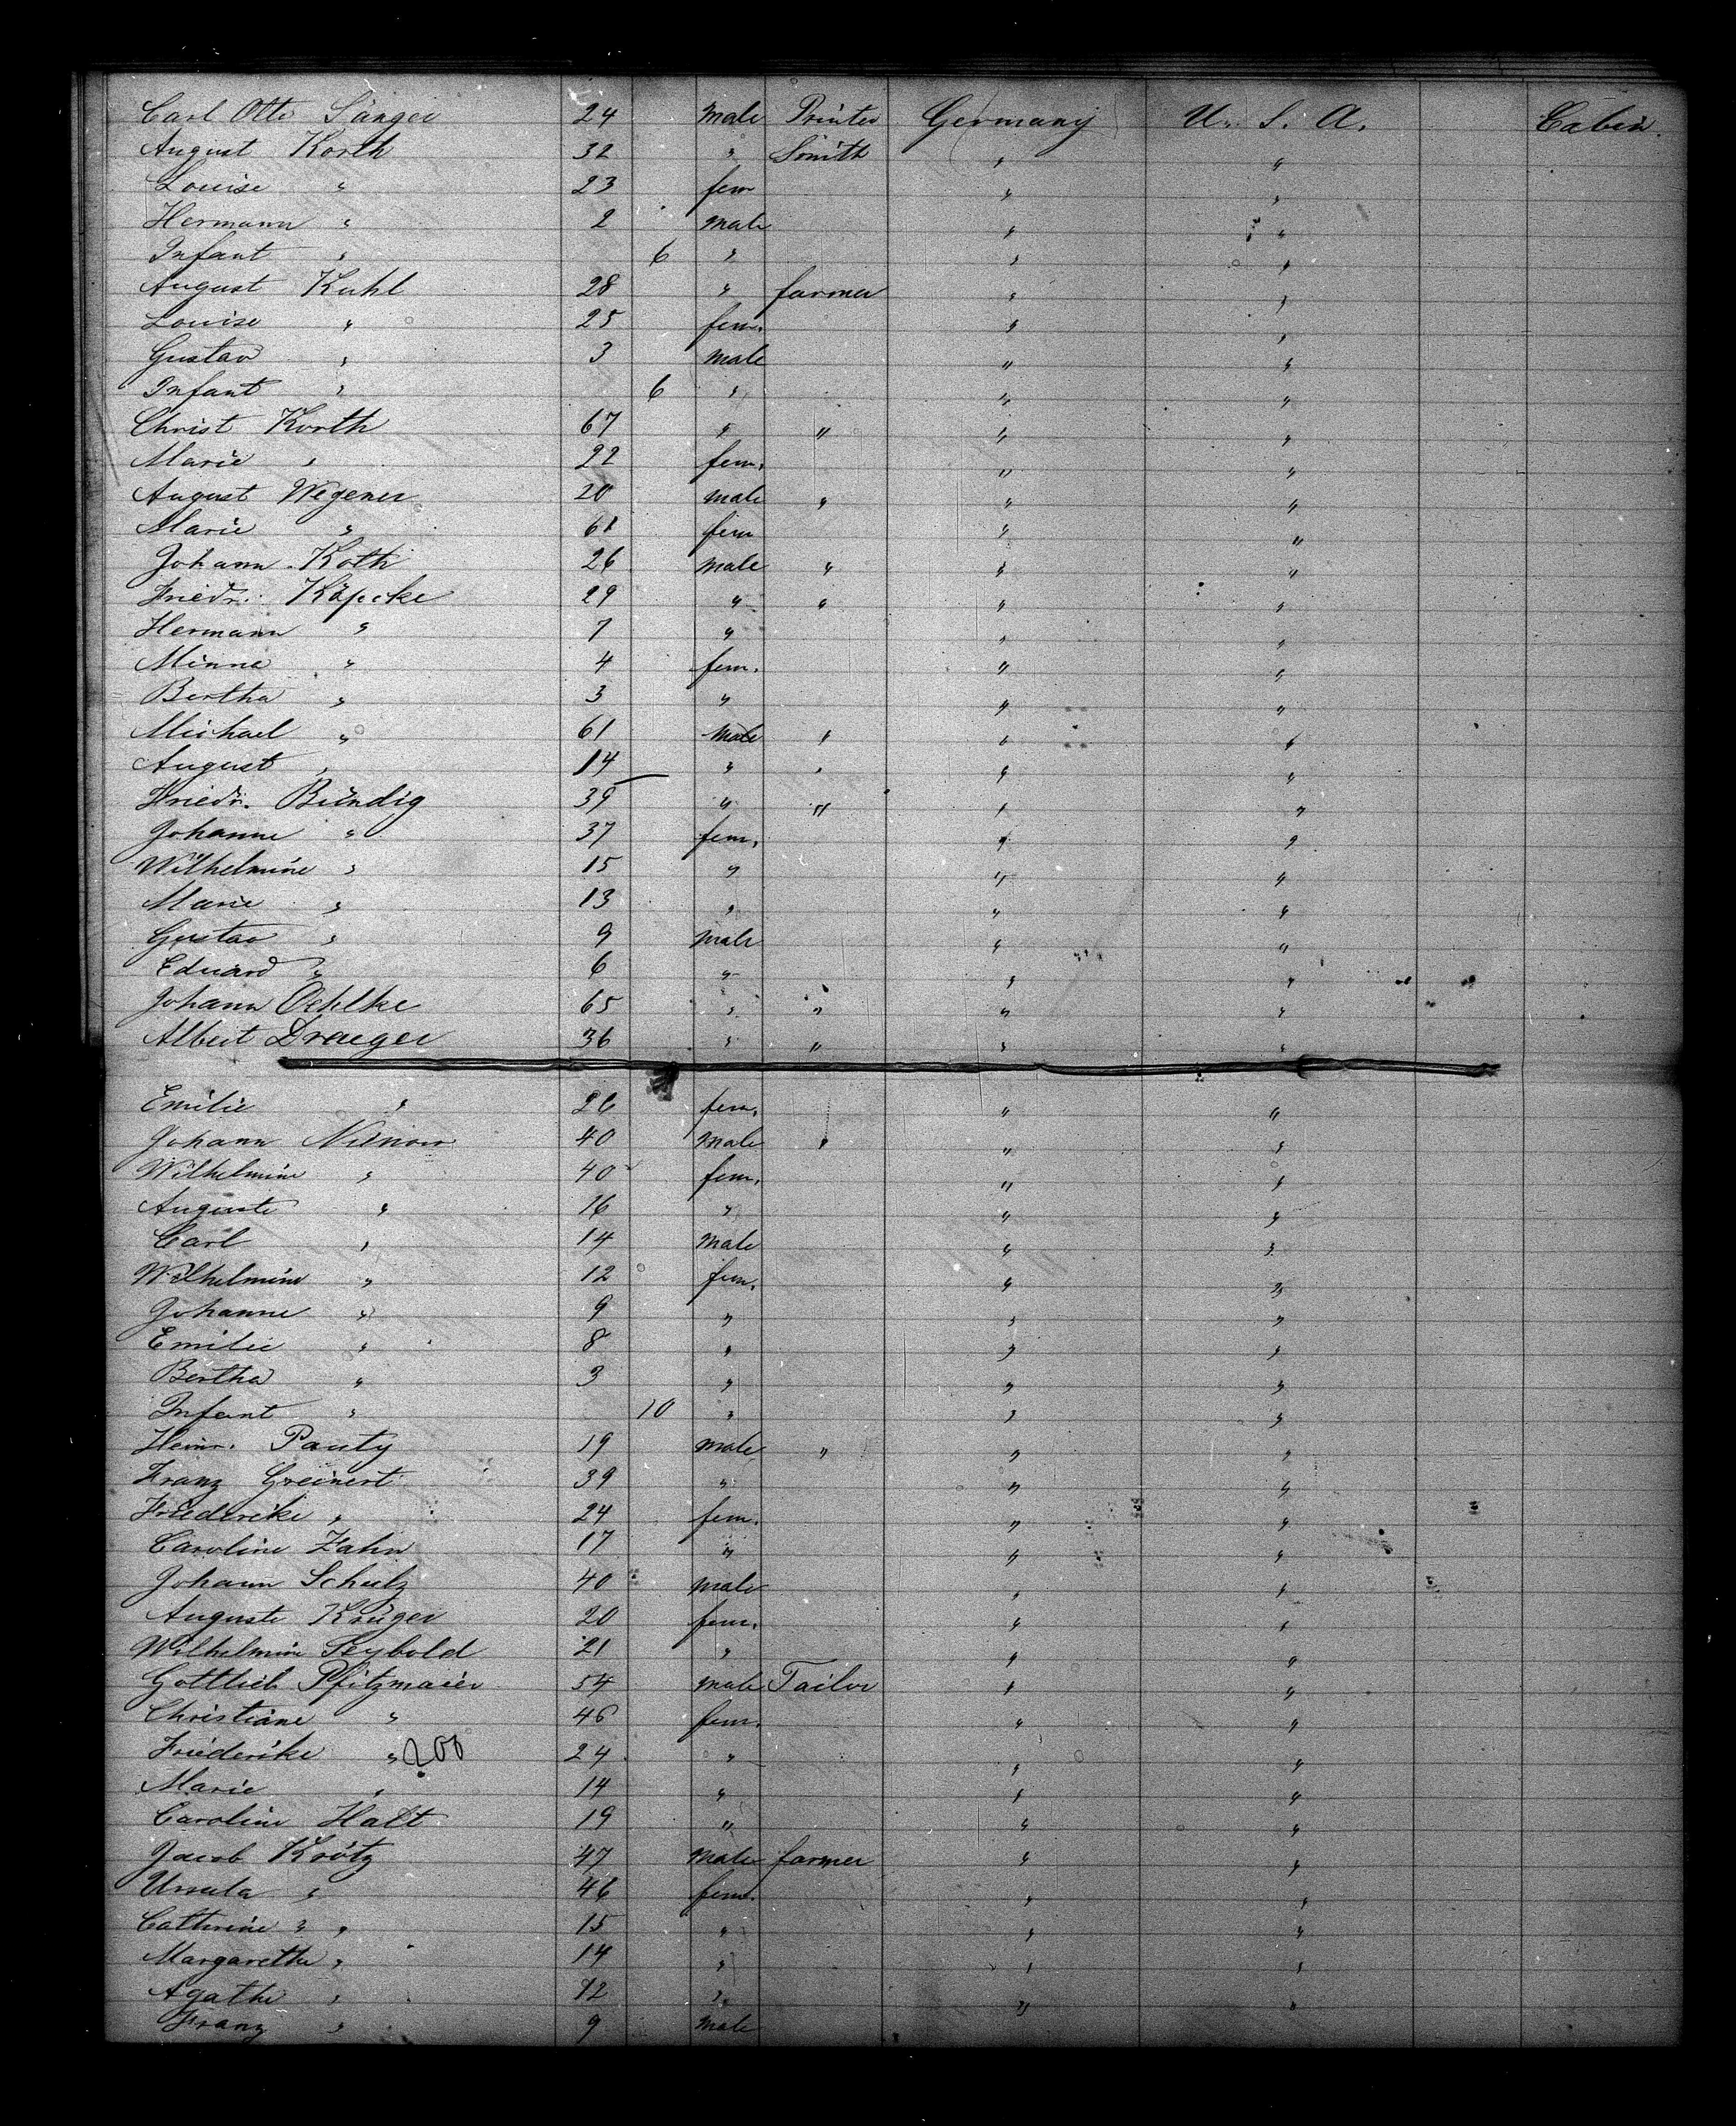 Carl Otto Sänger 24 male Printer Germany U. S. A. Cabin.
August Korth 32 " Smith " "
Louise " 23 fem " "
Hermann " 2 male " "
Infant " 6 " " "
August Kuhl 28 " farmer " "
Louise " 25 fem. " "
Gustav " 3 male " "
Infant " 6 " " "
Christ Korth 67 " " " "
Marie " 22 fem. " "
August Wegener 20 male " " "
Marie " 61 fem " "
Johann Koth 26 male " " "
Friedr. Köpcke 29 " " " "
Hermann " 7 " " "
Minna " 4 fem. " "
Bertha " 3 " " "
Michael " 61 male " " "
August " 14 " " " "
Friedr. Bündig 39 " " " "
Johanne " 37 fem. " "
Wilhelmine " 15 " " "
Marie " 13 " " "
Gustav " 9 male " "
Eduard " 6 " " "
Johann Oehlke 65 " " " "
Albert Draeger 36 " " " "
Emilie " 26 fem. " "
Johann 40 male " " "
Wilhelmine " 40 fem. " "
Auguste " 16 " " "
Carl " 14 male " "
Wilhelmine " 12 fem. " "
Johanne " 9 " " "
Emilie " 8 " " "
Bertha " 3 " " "
Infant " 10 " " "
Heinr. Pauty 19 male " " "
Franz Greinert 39 " " "
Friederike " 24 fem. " "
Caroline Zahn 17 " " "
Johann Schulz 40 male " "
Auguste Krüger 20 fem. " "
Wilhelmine Seybold 21 " " "
Gottlieb Pfitzmaier 54 male Tailor " "
Christiane " 46 fem. " "
Friederike " 200 24 " " "
Marie " 14 " " "
Caroline Halt 19 " " "
Jacob Krötz 47 male farmer " "
Ursula " 46 fem. " "
Cathrine " " 15 " " "
Margarethe " 14 " " "
Agathe " 12 " " "
Franz " 9 male